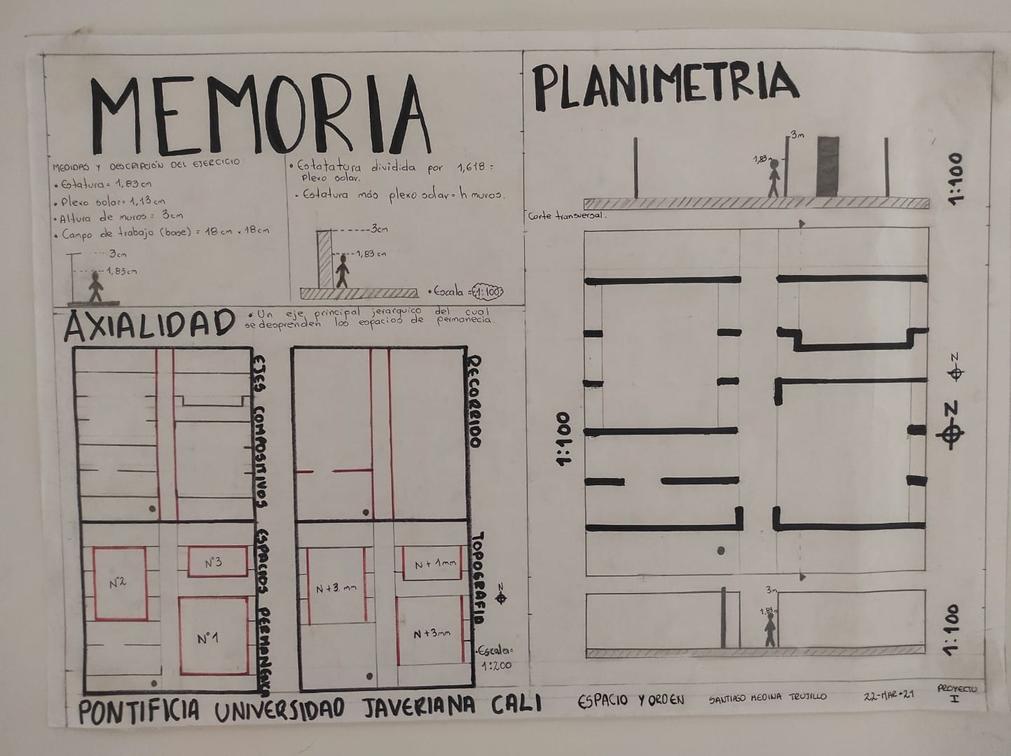 MEMORIA
MEDIDAS Y DESCRIPCIÓN DEL EJERCICIO
• Estatura= 1,83cm
• Plexo solar= 1,13cm
• Altura de muros= 3cm
• Campo de trabajo (base) = 18cm . 18cm
3cm
1,83cm
• Estatatura dividida por 1,618 =
Plexo solar.
• Estatura más plexo solar= h muros.
3cm
1,83 cm
• Escala = 1:100
AXIALIDAD
• Un eje principal jerarquico del cual
se desprenden los espacios de permanecia.
EJES COMPOSITIVOS
RECORRIDO
ESPACIOS PERMANENCIA
N°2
N°3
N°1
TOPOGRAFIA
N+3 mm
N+1mm
N+3mm
N
•Escala=
1:200
PLANIMETRIA
3m
1,83
1:100
Corte transversal.
1:100
N
N
3m
1,83
1:100
PONTIFICIA UNIVERSIDAD JAVERIANA CALI
ESPACIO Y ORDEN
SANTIAGO MEDINA TRUJILLO
22-MAR-21
PROYECTO
I